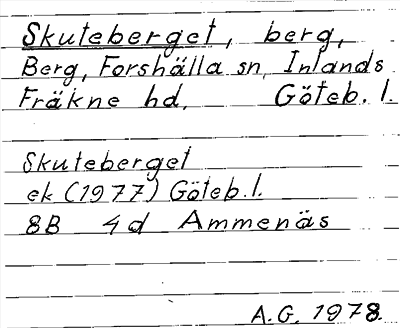 Skuteberget, berg,
Berg, Forshälla sn, Inlands
Fräkne hd, Göteb. l.
Skuteberget
ek (1977) Göteb. l.
8B 4d Ammenäs
A.G. 1978.